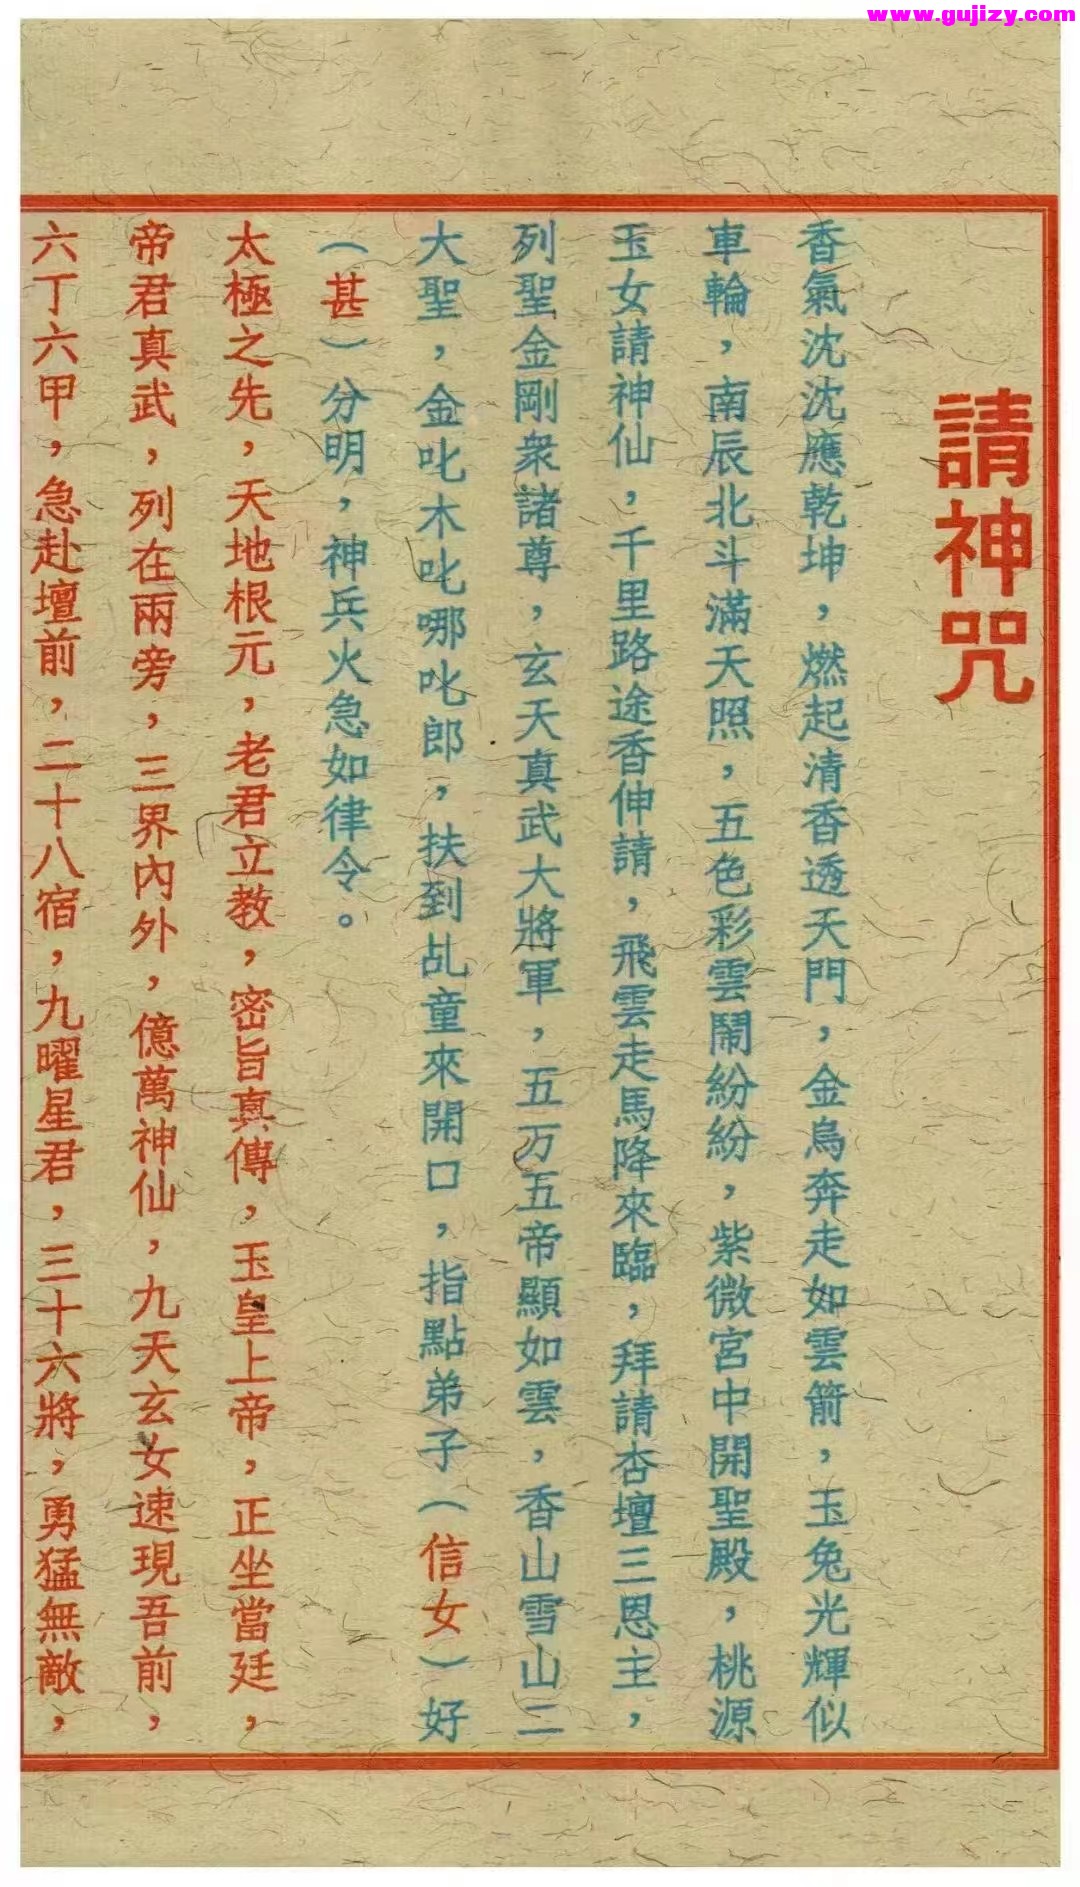 www.gujizy.com
請神咒
香氣沈沈應乾坤，燃起清香透天門，金烏奔走如雲箭，玉兔光輝似
車輪，南辰北斗滿天照，五色彩雲鬧紛紛，紫微宮中開聖殿，桃源
玉女請神仙，千里路途香伸請，飛雲走馬降來臨，拜請杏壇三恩主，
列聖金剛衆諸尊，玄天真武大將軍，五万五帝顯如雲，香山雪山二
大聖，金叱木叱哪叱郎，扶到乩童來開口，指點弟子（信女）好
（甚）分明，神兵火急如律令。
太極之先，天地根元，老君立教，密旨真傳，玉皇上帝，正坐當廷，
帝君真武，列在兩旁，三界內外，億萬神仙，九天玄女速現吾前，
六丁六甲，急赴壇前，二十八宿，九曜星君，三十六將，勇猛無敵，